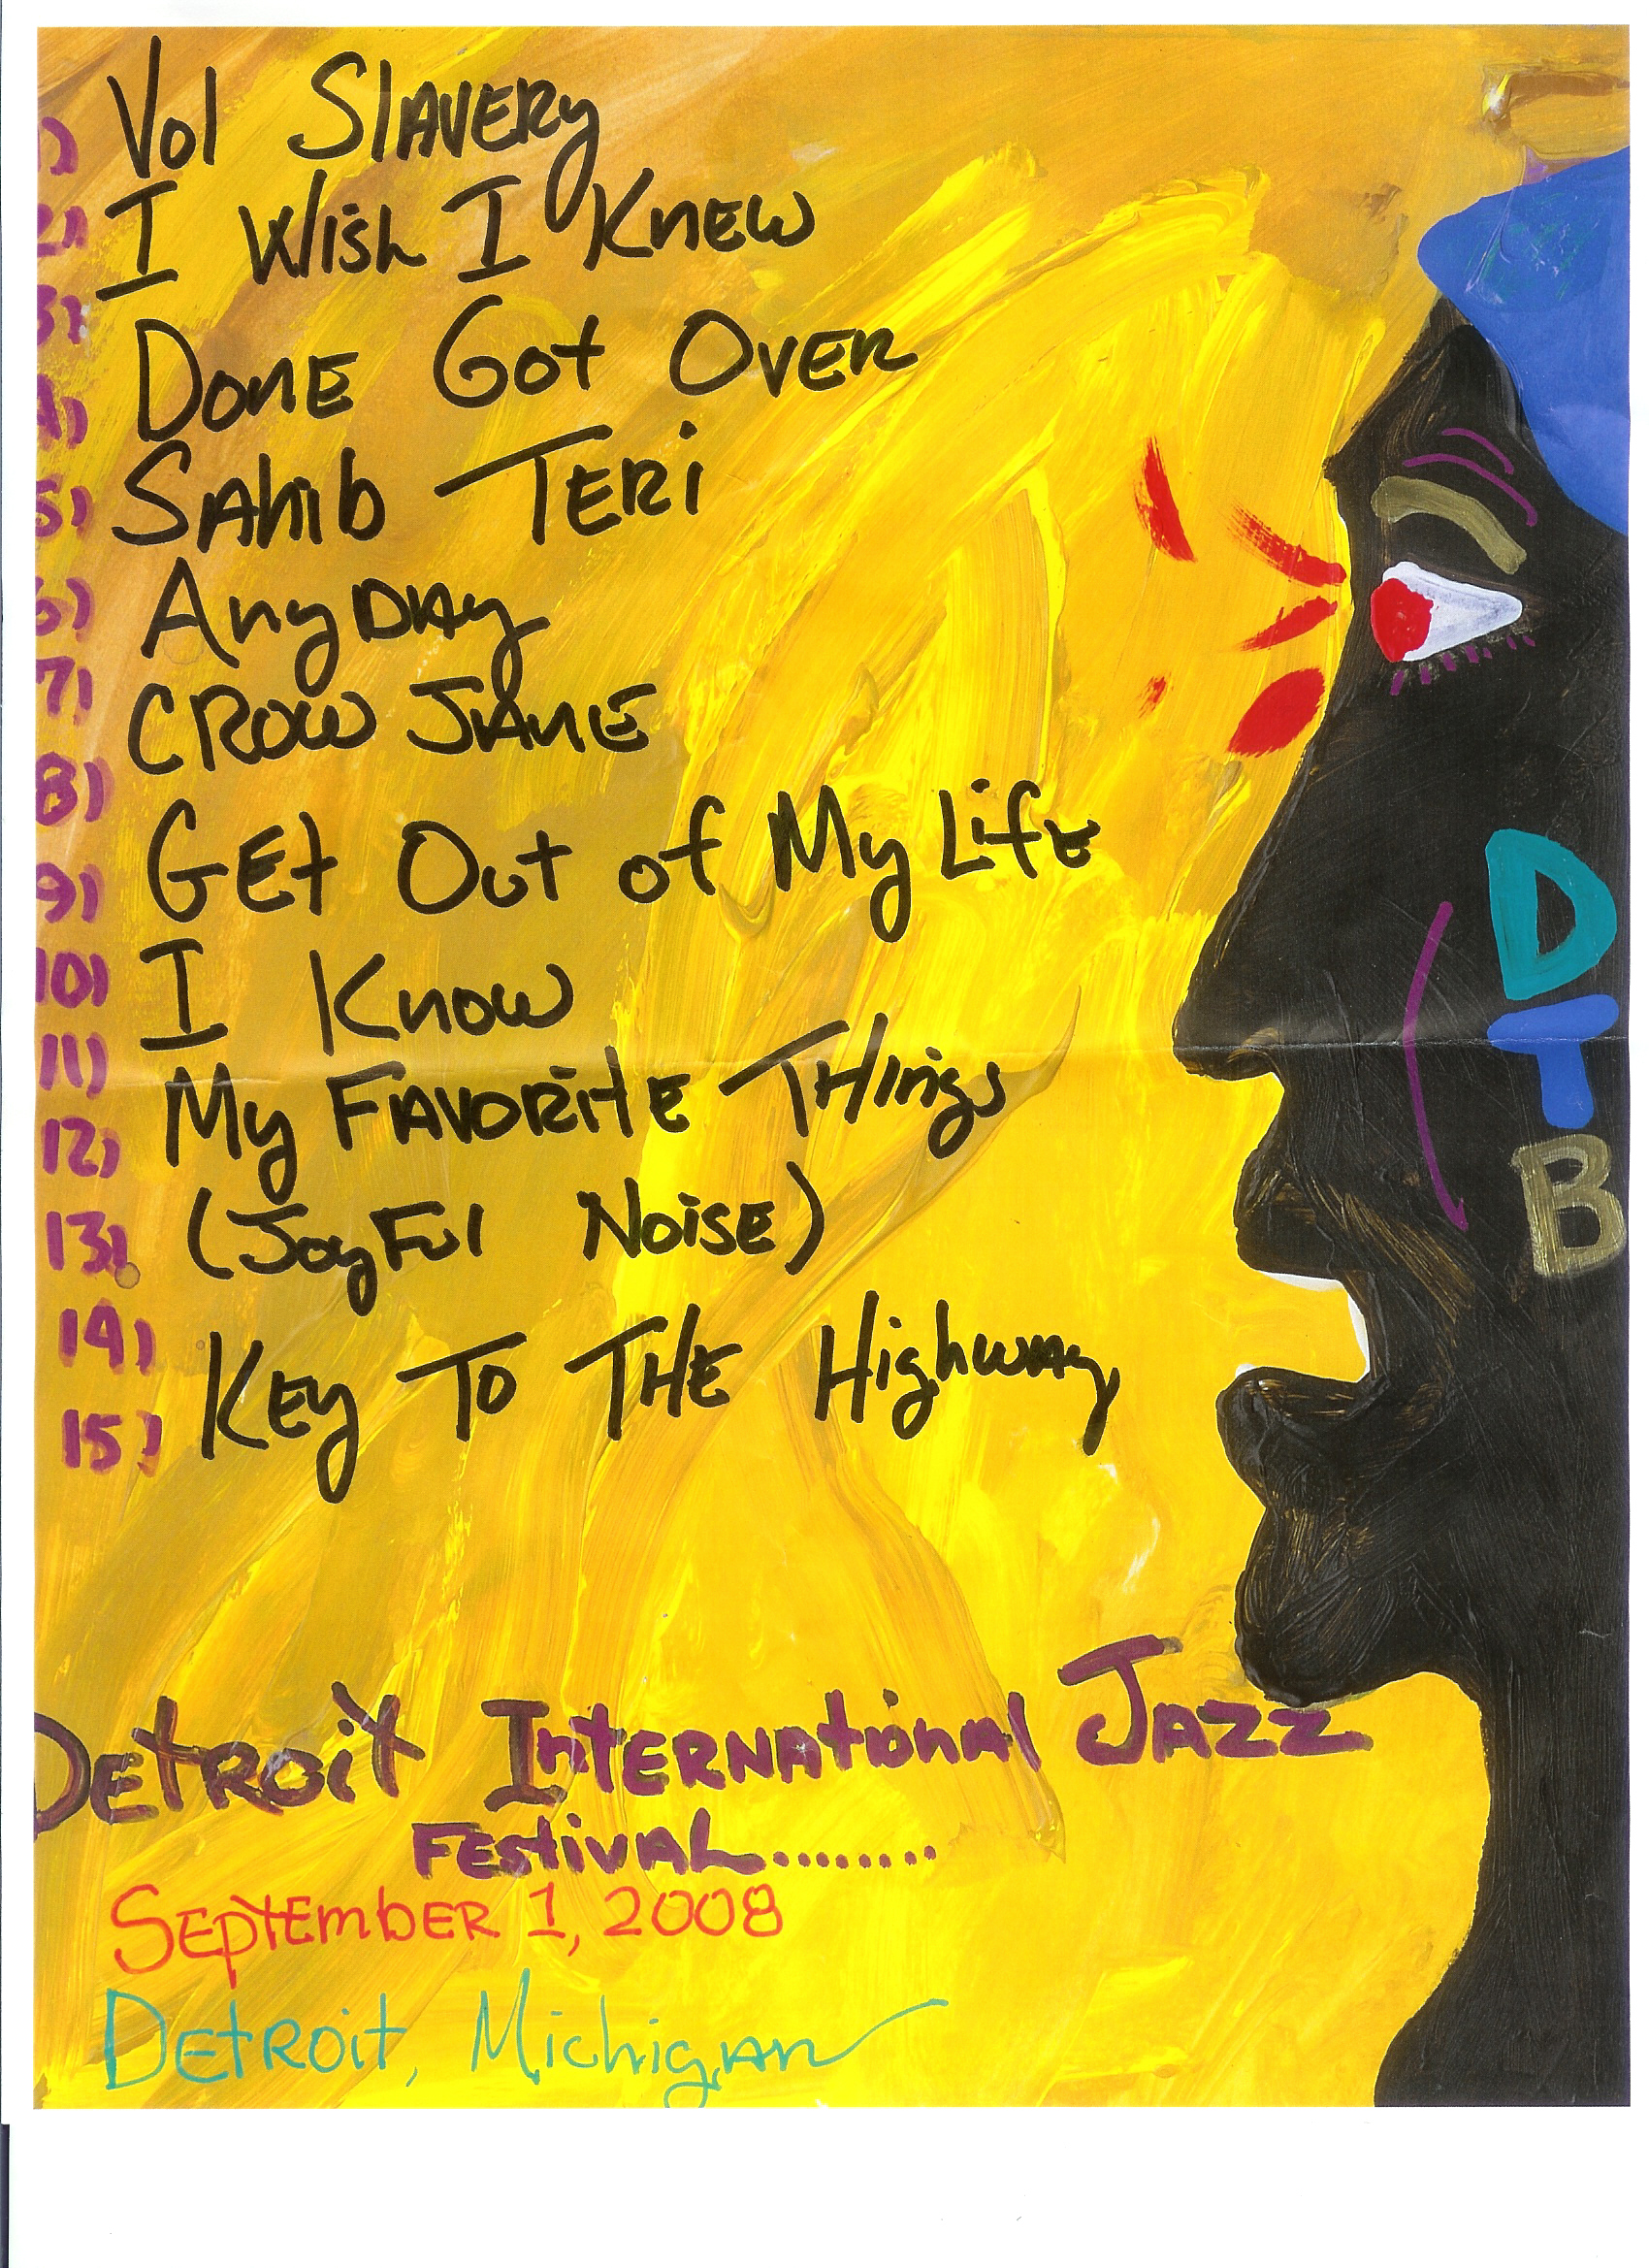 1) Vol Slavery
2) I Wish I Knew
3) Done Got Over
4) Sahib Teri
5) Anyday
6) Crow Jane
7) Get Out of My Life
8) I Know
9) My Favorite Things
10) (Joyful Noise)
11) Key To The Highway
12)
13)
14)
15)
D
T
B
Detroit International Jazz
Festival........
September 1, 2008
Detroit, Michigan